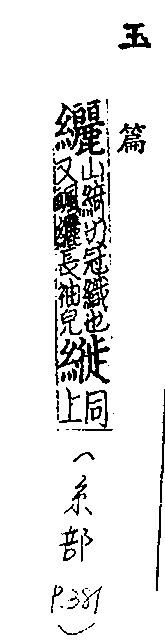 玉篇
纚
山綺切冠織也
又颯纚長袖皃
縰
同
上
(糸部
P.381)